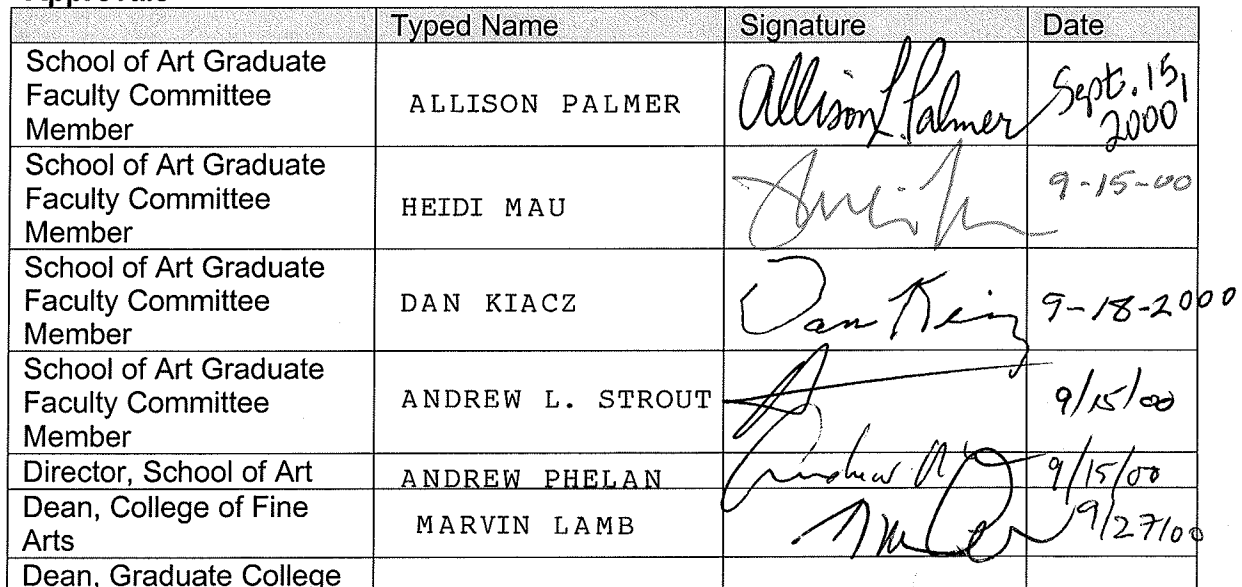 Typed Name Signature Date
School of Art Graduate
Faculty Committee
Member
ALLISON PALMER
Allison L. Palmer
Sept. 15,
2000
School of Art Graduate
Faculty Committee
Member
HEIDI MAU
9-15-00
School of Art Graduate
Faculty Committee
Member
DAN KIACZ
Dan
9-18-2000
School of Art Graduate
Faculty Committee
Member
ANDREW L. STROUT
9/15/00
Director, School of Art
ANDREW PHELAN
Andrew
9/15/00
Dean, College of Fine
Arts
MARVIN LAMB
9/27/00
Dean, Graduate College